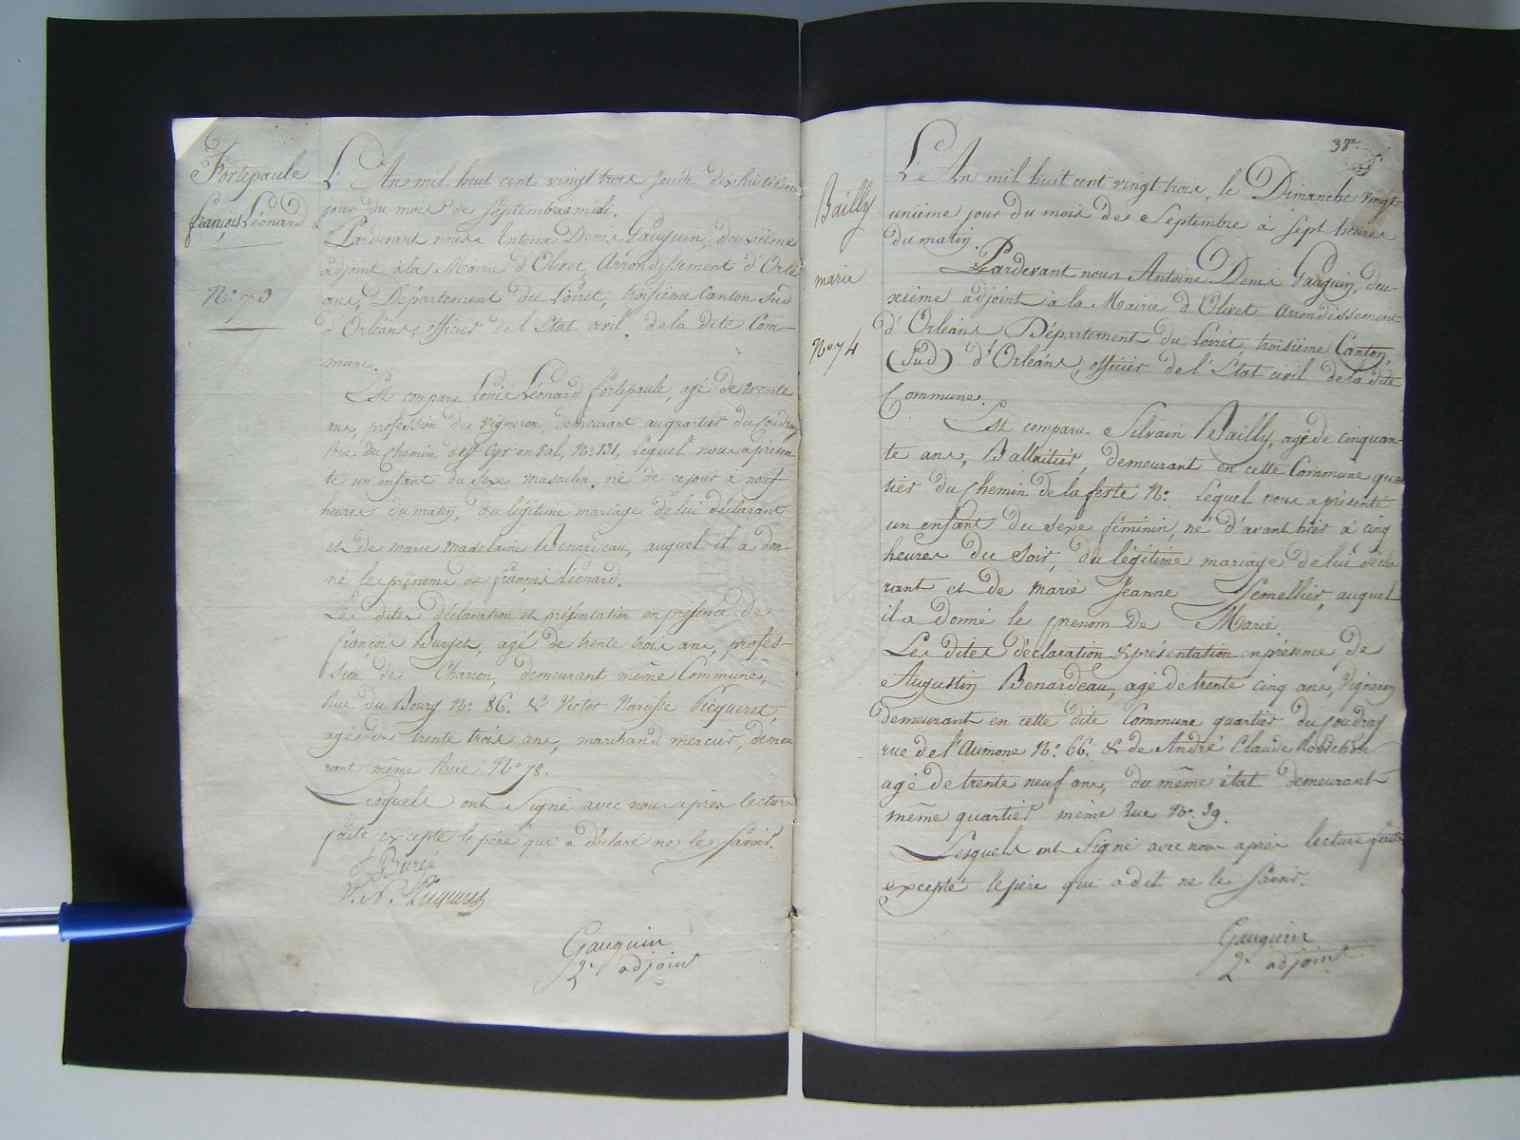 Fortepaule
françois Léonard
N.º 73
L'An mil huit cent vingt trois Jeudi dix huitieme
jour du mois de Septembre à midi.
Pardevant nous Antoine Denis Gauguin, deuxième
adjoint à la Mairie d'Olivet, Arrondissement d'Orlé
ans, Département du Loiret, troisieme Canton Sud
d'Orléans, officier de l'Etat civil de la dite Com-
mune.
Est comparu Louis Léonard fortepaule, agé de trente
ans, profession de vigneron demeurant au quartier du Coudray
rue du Chemin de St Cyr en Val, N.º 131, Lequel nous a présen
té un enfant du Sexe masculin, né de ce jour à neuf
heures du matin, du légitime mariage de lui déclarant
et de marie madelaine Benardeau, auquel il a don-
né le prénoms de françois Léonard.
Les dites déclaration et présentation en présence de
françois agé de trente trois ans, profes-
sion de Charron, demeurant même Commune,
Rue du Bourg N.º 86. & Victor Narcisse Picqueret
agé de trente trois ans, marchand mercier, demeu
rant même Rue N.º 78.
Lesquels ont Signé avec nous après lecture
faite excepté le père qui a déclaré ne le savoir.
V. N. Picqueret
Gauguin
2.e adjoint
38e
Bailly
marie
N.º 74
L'An mil huit cent vingt trois, le Dimanche vingt
unième jour du mois de Septembre à sept heures
du matin.
Pardevant nous Antoine Denis Gauguin, deu-
xième adjoint à la Mairie d'Olivet arrondissement
d'Orléans Département du Loiret troisième Canton,
(Sud) d'Orléans, officier de l'Etat civil de la dite
Commune.
Est comparu Silvain Bailly, agé de cinquan-
te ans, Ballaitier, demeurant en cette Commune quar
tier du Chemin de la ferté N.º Lequel nous a présenté
un enfant du Sexe féminin, né d'avant hier à cinq
heures du Soir, du légitime mariage de lui décla
rant et de Marie Jeanne Semellier, auquel
il a donné le prenom de Marie
Les dites déclaration & présentation en présence de
Augustin Benardeau, agé de trente cinq ans, Vigneron
demeurant en cette dite Commune quartier du Coudray
rue de l'Aumone N.º 66. & de André Claude
agé de trente neuf ans, du même état demeurant
même quartier même Rue N.º 39.
Lesquels ont Signé avec nous après lecture faite
excepté le père qui a dit ne le savoir.
Gauguin
2.e adjoint